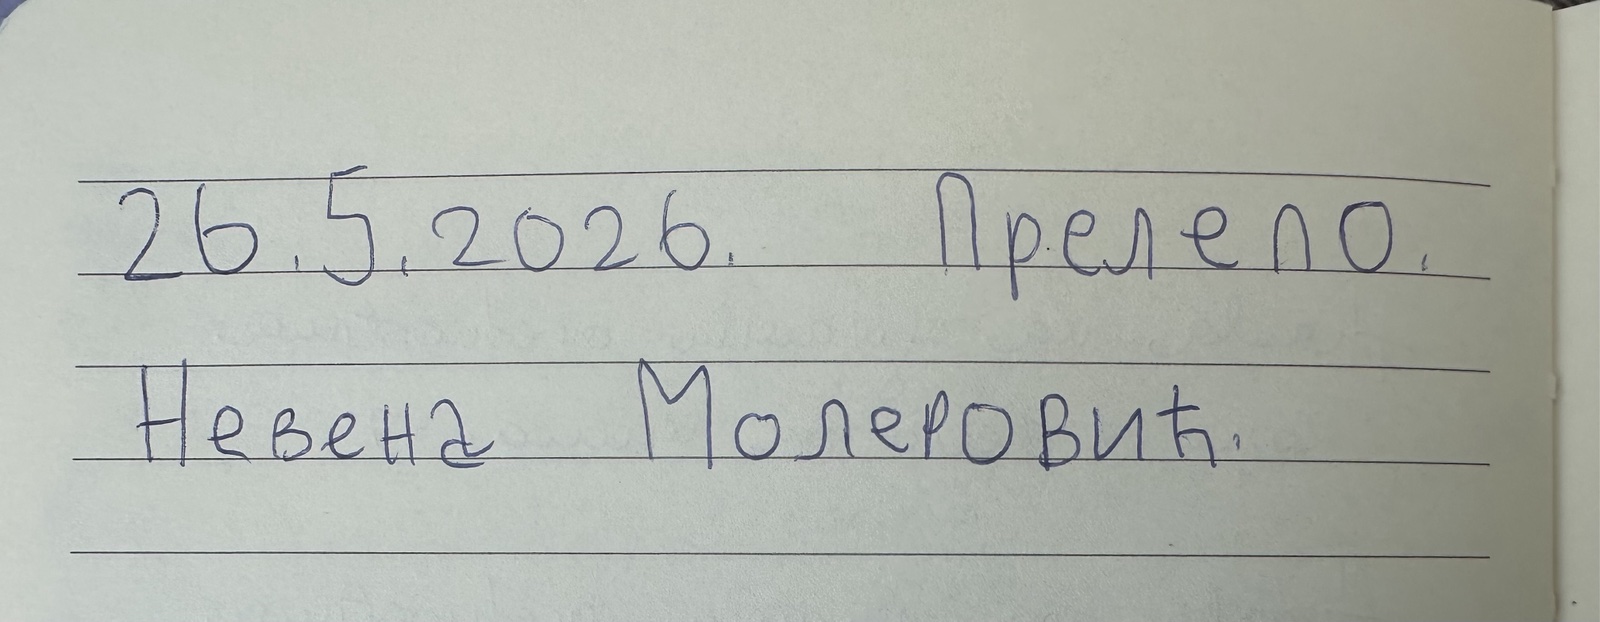 26.5.2026. Прелепо.
Невена Молеровић.